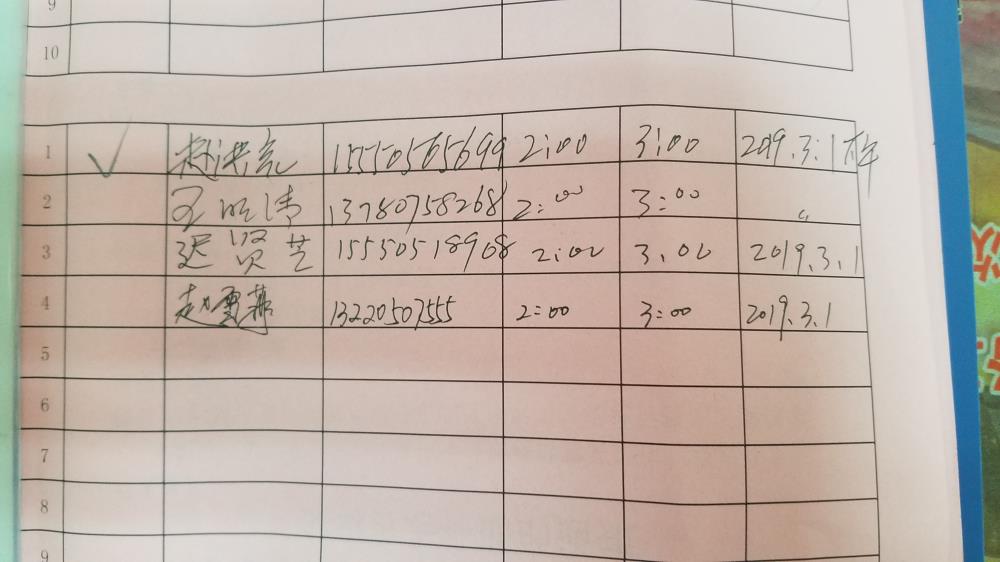 9
10
1 √ 赵洪亮 15550565699 2:00 3:00 2019.3.1
2 王明伟 13780758268 2:00 3:00 〃
3 迟贤芝 15550518968 2:00 3.00 2019.3.1
4 赵雪燕 13220507555 2:00 3:00 2019.3.1
5
6
7
8
9